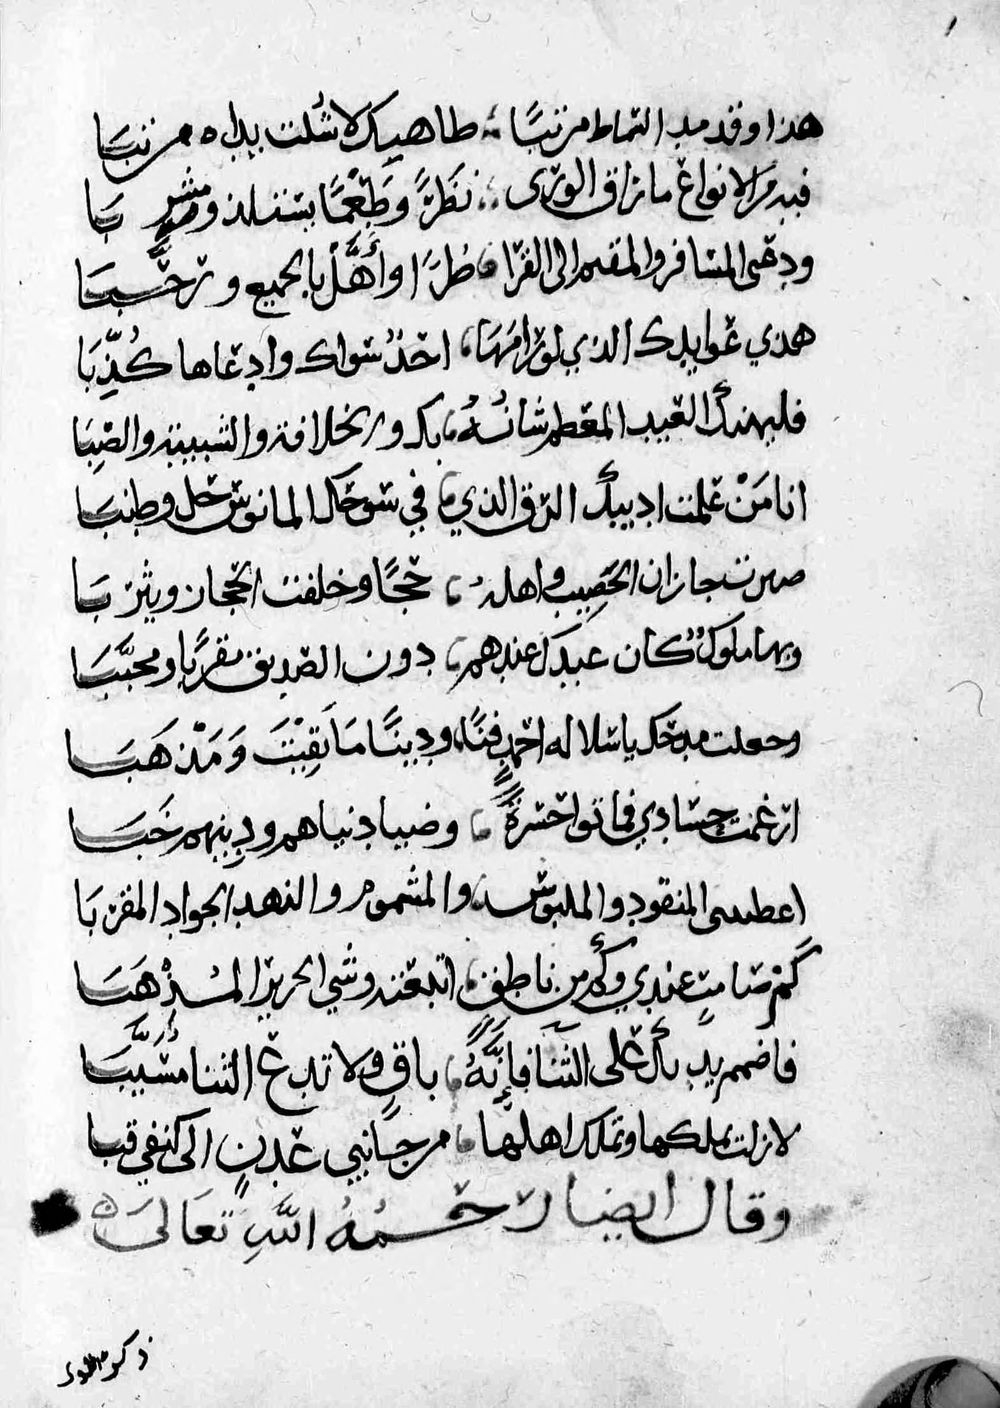 هذا وقد مد السماط مرتبًا طاهيك لا شلت يداه مرتبَا
فيه من الانواع ما راق الورى نظرًا وطعمًا يستلذ ومشربَا
ودعى المسافر والمقيم الى القرا طرًا واهَّل بالجميع ورحَّبَا
هذي عوايدك الذي لو رامها احدٌ سواك وادعاها كُذِّبَا
فليهنك العيد المعظم شانُهُ بك والخلافة والشبيبة والصِّبَا
انا مَنْ علمت اديبك الرق الذي في سوحك المانوس حل وطنبَا
صيرت جازان الحصيب واهله حججًا وخلفت الحجاز ويثربَا
وبها ملوك كان عبدك عندهم دون الصديق مقربًا ومحببَا
وجعلت مدحك يا سلالة احمدٍ فنًّا ودينًا مَا بَقِيْتَ وَمَذْهَبَا
ارغمت حسادي فماتوا حسرةً دنياهم ودينهم خَبَا
اعطيتني المنقود والملبوس والمشموم والنهد الجواد المقربَا
كَمْ صامتٍ عندي وكم من ناطق اتبعته وشي الحرير المُذْهَبَا
فاضمم يديك على الثنا فإنَّهُ باقٍ ولا تدع الثنا مسَيَّبَا
لا زلت تملكها وتملك اهلها من جانبي عدنٍ الى كنفي قبا
وقال ايضا رحمهُ اللهِ تعَالىَ